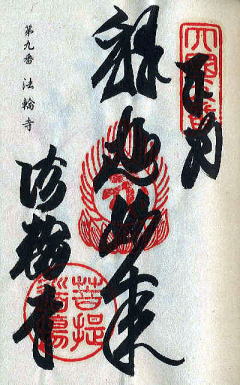 奉納
釋迦如来
法輪寺
第九番 法輪寺
菩提